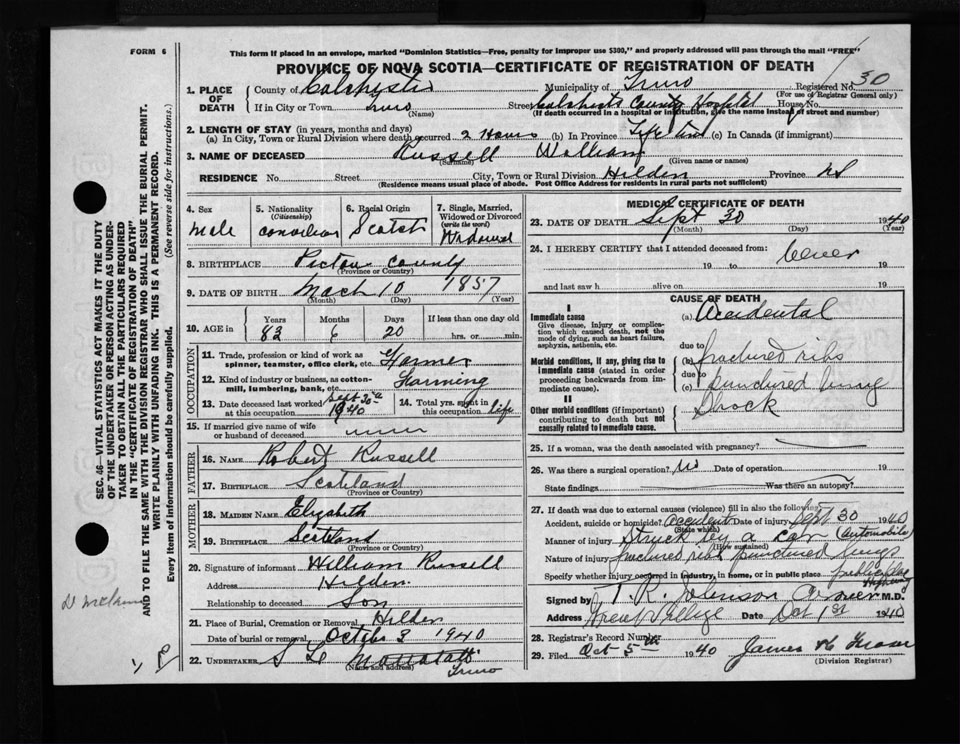 FORM 6
This form if placed in an envelope, marked "Dominion Statistics—Free, penalty for improper use $300," and properly addressed will pass through the mail "FREE"
PROVINCE OF NOVA SCOTIA—CERTIFICATE OF REGISTRATION OF DEATH
1. PLACE OF DEATH
County of Colchester Municipality of Truro Registered No. 30
(For use of Registrar General only)
If in City or Town Truro Street Colchester County Hospital House No.
(Name) (If death occurred in a hospital or institution, give the name instead of street and number)
2. LENGTH OF STAY (in years, months and days)
(a) In City, Town or Rural Division where death occurred 2 Hours (b) In Province Life time (c) In Canada (if immigrant)
3. NAME OF DECEASED Russell William
(Surname) (Given name or names)
RESIDENCE No. Street City, Town or Rural Division Hilden Province NS
(Residence means usual place of abode. Post Office Address for residents in rural parts not sufficient)
SEC. 46—VITAL STATISTICS ACT MAKES IT THE DUTY
OF THE UNDERTAKER OR PERSON ACTING AS UNDER-
TAKER TO OBTAIN ALL THE PARTICULARS REQUIRED
IN THE "CERTIFICATE OF REGISTRATION OF DEATH"
AND TO FILE THE SAME WITH THE DIVISION REGISTRAR WHO SHALL ISSUE THE BURIAL PERMIT.
WRITE PLAINLY WITH UNFADING INK. THIS IS A PERMANENT RECORD.
Every item of information should be carefully supplied. (See reverse side for instructions.)
4. Sex
Male
5. Nationality
(Citizenship)
Canadian
6. Racial Origin
Scotch
7. Single, Married,
Widowed or Divorced
(write the word)
Widowed
8. BIRTHPLACE Pictou County
(Province or Country)
9. DATE OF BIRTH Mach 10 1857
(Month) (Day) (Year)
10. AGE in
Years Months Days If less than one day old
83 6 20 hrs. or min.
OCCUPATION
11. Trade, profession or kind of work as
spinner, teamster, office clerk, etc. Farmer
12. Kind of industry or business, as cotton-
mill, lumbering, bank, etc. Farming
13. Date deceased last worked
at this occupation Sept 30th 1940
14. Total yrs. spent in
this occupation life
15. If married give name of wife
or husband of deceased
FATHER
16. NAME Robert Russell
17. BIRTHPLACE Scotland
(Province or Country)
MOTHER
18. MAIDEN NAME Elizabeth
19. BIRTHPLACE Scotland
(Province or Country)
20. Signature of informant William Russell
Address Hilden
Relationship to deceased Son
21. Place of Burial, Cremation or Removal Hilden
Date of burial or removal October 3 1940
22. UNDERTAKER
(Name and address)
Truro
MEDICAL CERTIFICATE OF DEATH
23. DATE OF DEATH Sept 30 1940
(Month) (Day) (Year)
24. I HEREBY CERTIFY that I attended deceased from:
19 to 19
and last saw h alive on 19
I
Immediate cause
Give disease, injury or complica-
tion which caused death, not the
mode of dying, such as heart failure,
asphyxia, asthenia, etc.
Morbid conditions, if any, giving rise to
immediate cause (stated in order
proceeding backwards from im-
mediate cause).
II
Other morbid conditions (if important)
contributing to death but not causally
related to immediate cause.
CAUSE OF DEATH
(a) Accidental
due to
fractured ribs
due to
(c) punctured lung
Shock
25. If a woman, was the death associated with pregnancy?
26. Was there a surgical operation? No Date of operation 19
State findings Was there an autopsy?
27. If death was due to external causes (violence) fill in also the following:
Accident, suicide or homicide? Accident Date of injury Sept 30 1940
(State which)
Manner of injury Struck by a car (Automobile)
(How sustained)
Nature of injury fractured ribs punctured lungs
Specify whether injury occurred in industry, in home, or in public place public place
Highway
Signed by T. R. Johnson Coroner M.D.
Address Date Oct 1st 1940
28. Registrar's Record Number
29. Filed Oct 5th 1940 James
(Division Registrar)